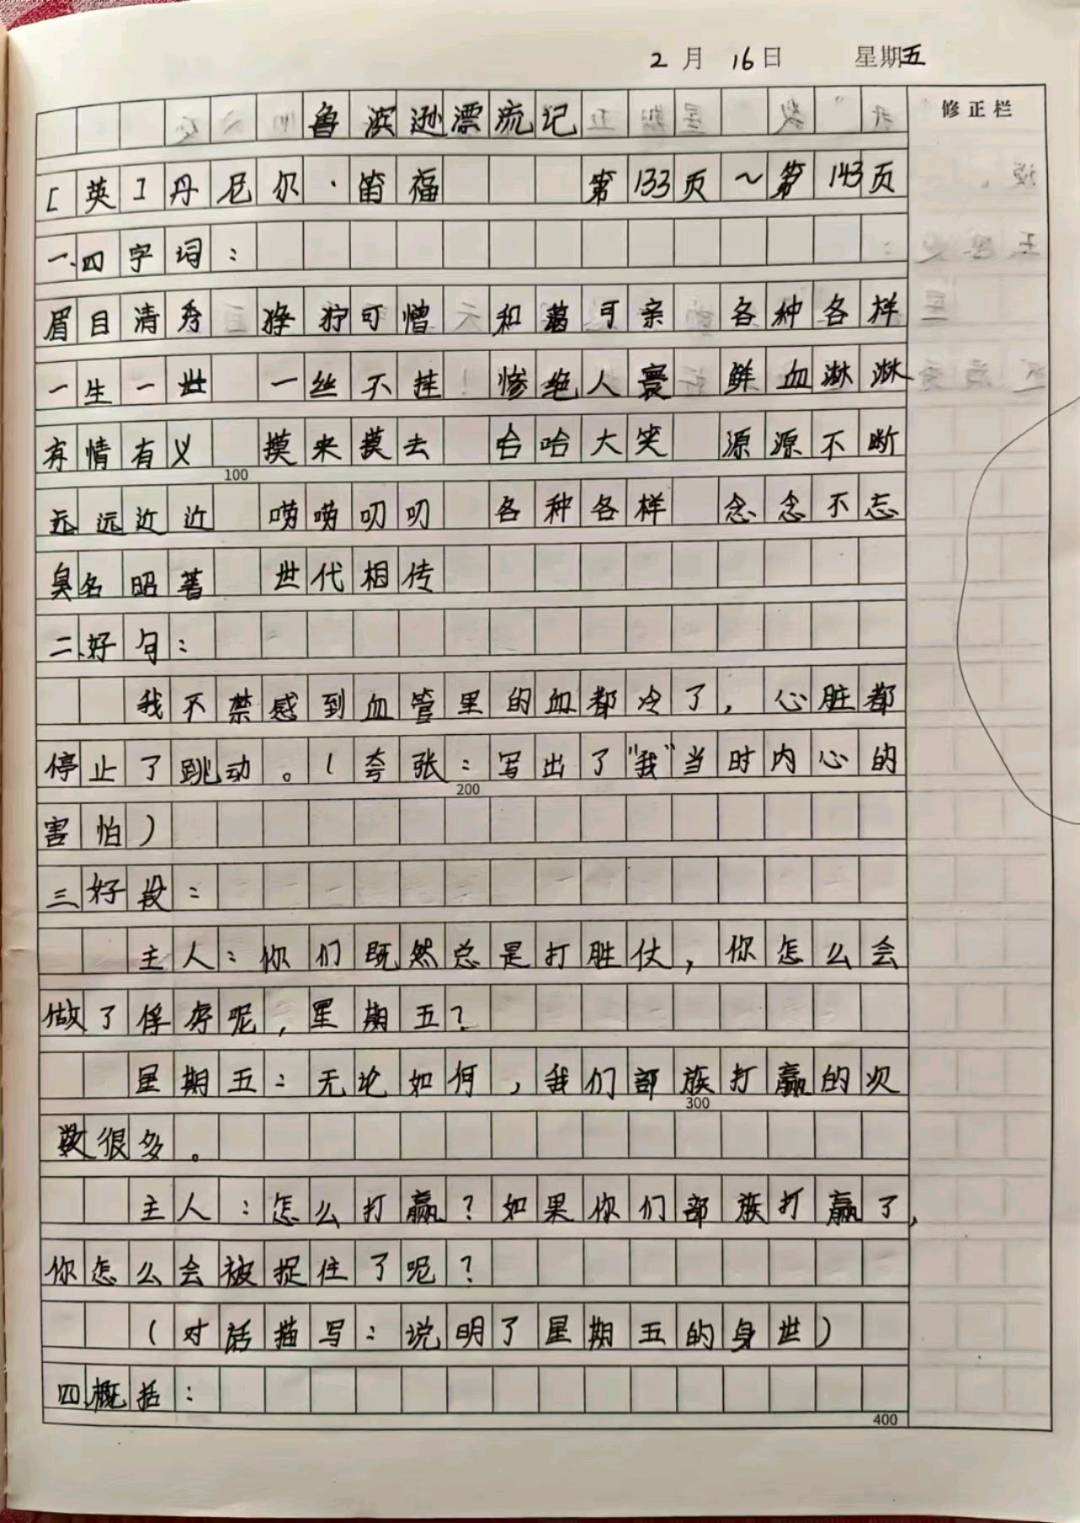 2月 16日 星期五
修正栏
鲁滨逊漂流记
[英]丹尼尔·笛福 第133页～第143页
一、四字词：
眉目清秀 狰狞可憎 和蔼可亲 各种各样
一生一世 一丝不挂 惨绝人寰 鲜血淋淋
有情有义 摸来摸去 哈哈大笑 源源不断
100
远远近近 唠唠叨叨 各种各样 念念不忘
臭名昭著 世代相传
二、好句：
我不禁感到血管里的血都冷了，心脏都
停止了跳动。(夸张：写出了"我"当时内心的
200
害怕)
三好段：
主人：你们既然总是打胜仗，你怎么会
做了俘虏呢，星期五？
星期五：无论如何，我们部族打赢的次
300
数很多。
主人：怎么打赢？如果你们部族打赢了，
你怎么会被捉住了呢？
(对话描写：说明了星期五的身世)
四、概括：
400